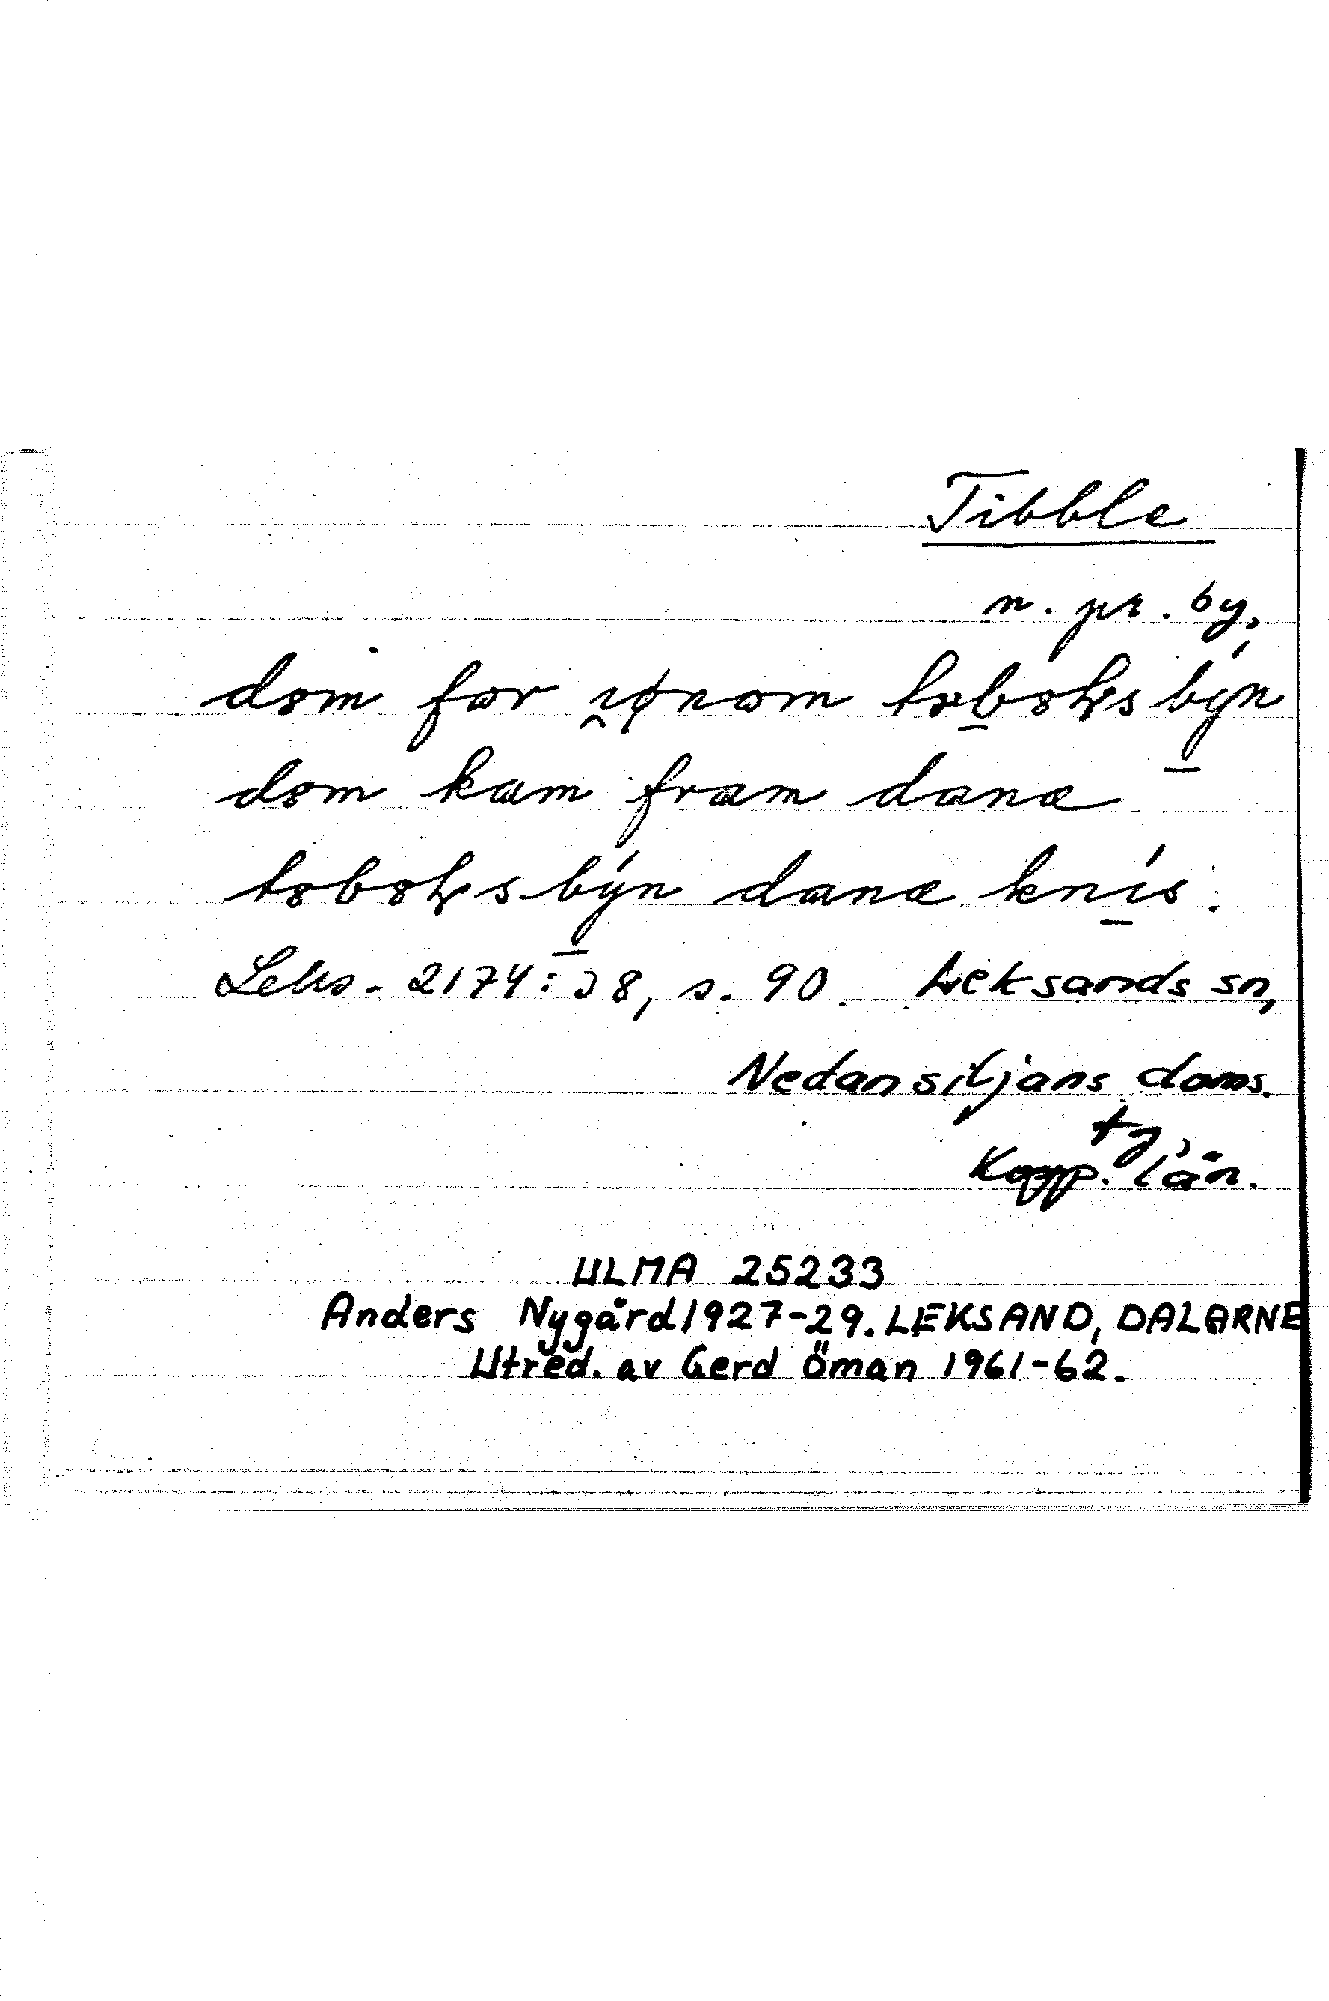 Tibble
n. pr. by,
dom far ıɡɵnom tæboks býn
dom kam fram dana
toboks býn dana knís.
Leks. 2174:38, s. 90. Leksands sn,
Nedansiljans doms.
tg,
Kopp. län.
ULMA 25233
Anders Nygård 1927-29. LEKSAND, DALARNE
Utred. av Gerd Öman 1961-62.